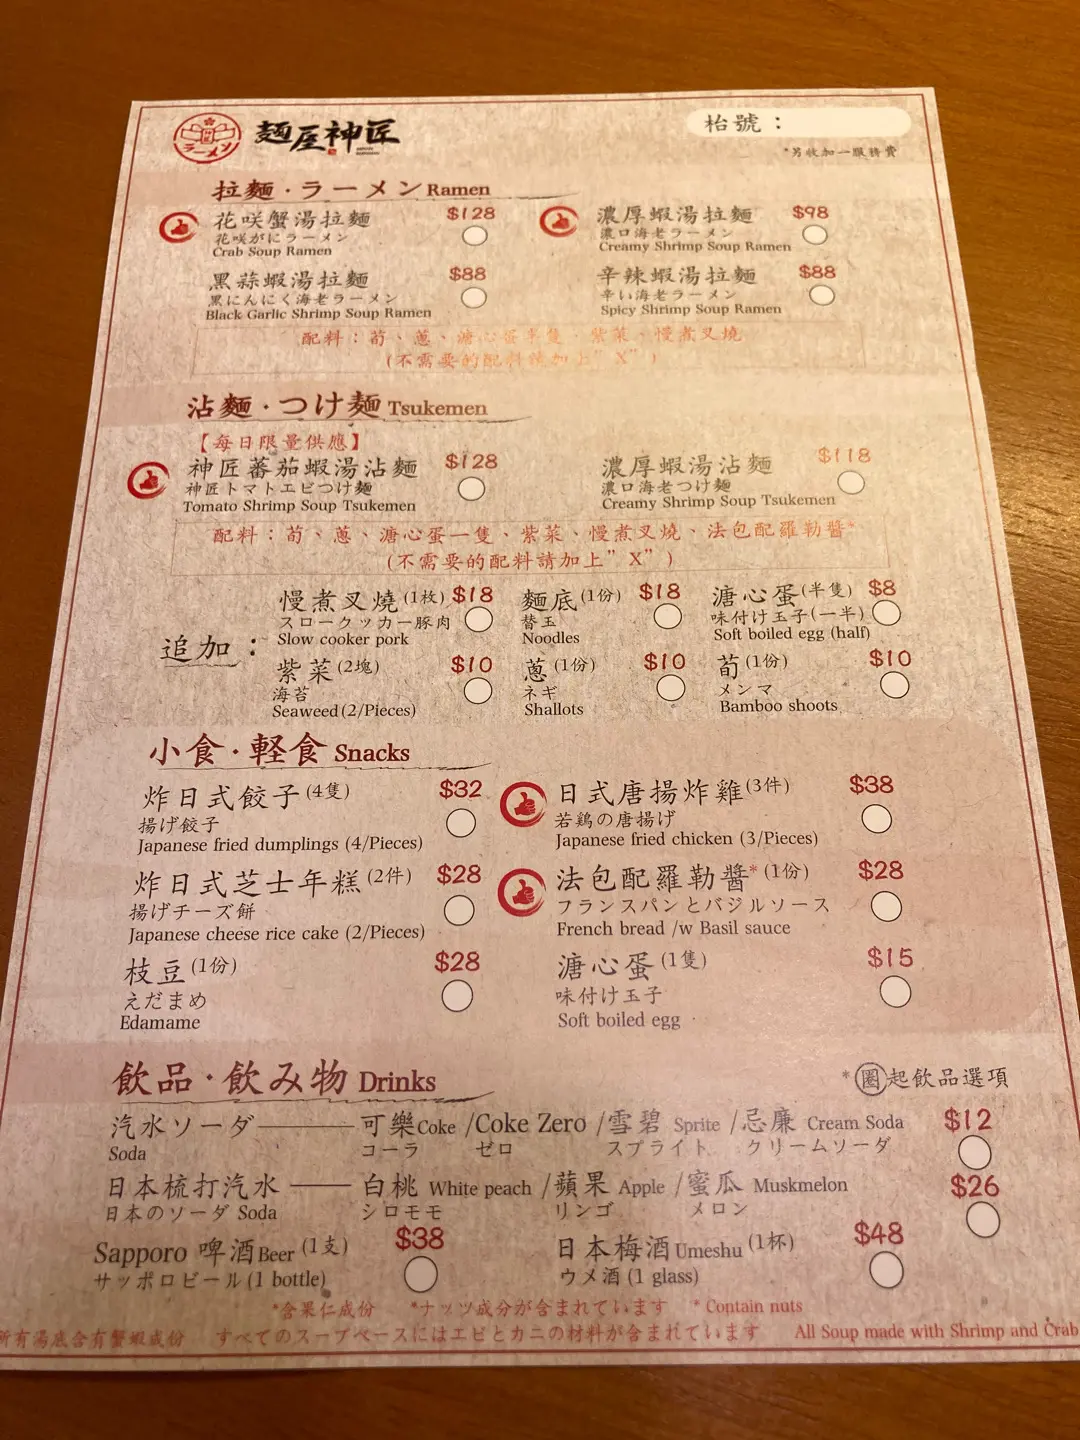 ラーメン
麵屋神匠
枱號：
*另收加一服務費
拉麵・ラーメン Ramen
花咲蟹湯拉麵 $128
花咲がにラーメン
Crab Soup Ramen
濃厚蝦湯拉麵 $98
濃口海老ラーメン
Creamy Shrimp Soup Ramen
黑蒜蝦湯拉麵 $88
黒にんにく海老ラーメン
Black Garlic Shrimp Soup Ramen
辛辣蝦湯拉麵 $88
辛い海老ラーメン
Spicy Shrimp Soup Ramen
配料：荀、蔥、溏心蛋半隻、紫菜、慢煮叉燒
(不需要的配料請加上”X”)
沾麵・つけ麵 Tsukemen
【每日限量供應】
神匠蕃茄蝦湯沾麵 $128
神匠トマトエビつけ麵
Tomato Shrimp Soup Tsukemen
濃厚蝦湯沾麵 $118
濃口海老つけ麵
Creamy Shrimp Soup Tsukemen
配料：荀、蔥、溏心蛋一隻、紫菜、慢煮叉燒、法包配羅勒醬*
(不需要的配料請加上”X”)
追加：
慢煮叉燒(1枚) $18
スロークッカー豚肉
Slow cooker pork
麵底(1份) $18
替玉
Noodles
溏心蛋(半隻) $8
味付け玉子(一半)
Soft boiled egg (half)
紫菜(2塊) $10
海苔
Seaweed(2/Pieces)
蔥(1份) $10
ネギ
Shallots
荀(1份) $10
メンマ
Bamboo shoots
小食・軽食 Snacks
炸日式餃子(4隻) $32
揚げ餃子
Japanese fried dumplings (4/Pieces)
日式唐揚炸雞(3件) $38
若鶏の唐揚げ
Japanese fried chicken (3/Pieces)
炸日式芝士年糕(2件) $28
揚げチーズ餅
Japanese cheese rice cake (2/Pieces)
法包配羅勒醬*(1份) $28
フランスパンとバジルソース
French bread /w Basil sauce
枝豆(1份) $28
えだまめ
Edamame
溏心蛋(1隻) $15
味付け玉子
Soft boiled egg
飲品・飲み物 Drinks
*圈起飲品選項
汽水ソーダ——可樂Coke /Coke Zero /雪碧 Sprite /忌廉 Cream Soda $12
Soda コーラ ゼロ スプライト クリームソーダ
日本梳打汽水——白桃 White peach /蘋果 Apple /蜜瓜 Muskmelon $26
日本のソーダ Soda シロモモ リンゴ メロン
Sapporo 啤酒Beer (1支) $38
サッポロビール(1 bottle)
日本梅酒Umeshu (1杯) $48
ウメ酒(1 glass)
*含果仁成份 *ナッツ成分が含まれています *Contain nuts
所有湯底含有蟹蝦成份 すべてのスープベースにはエビとカニの材料が含まれています All Soup made with Shrimp and Crab